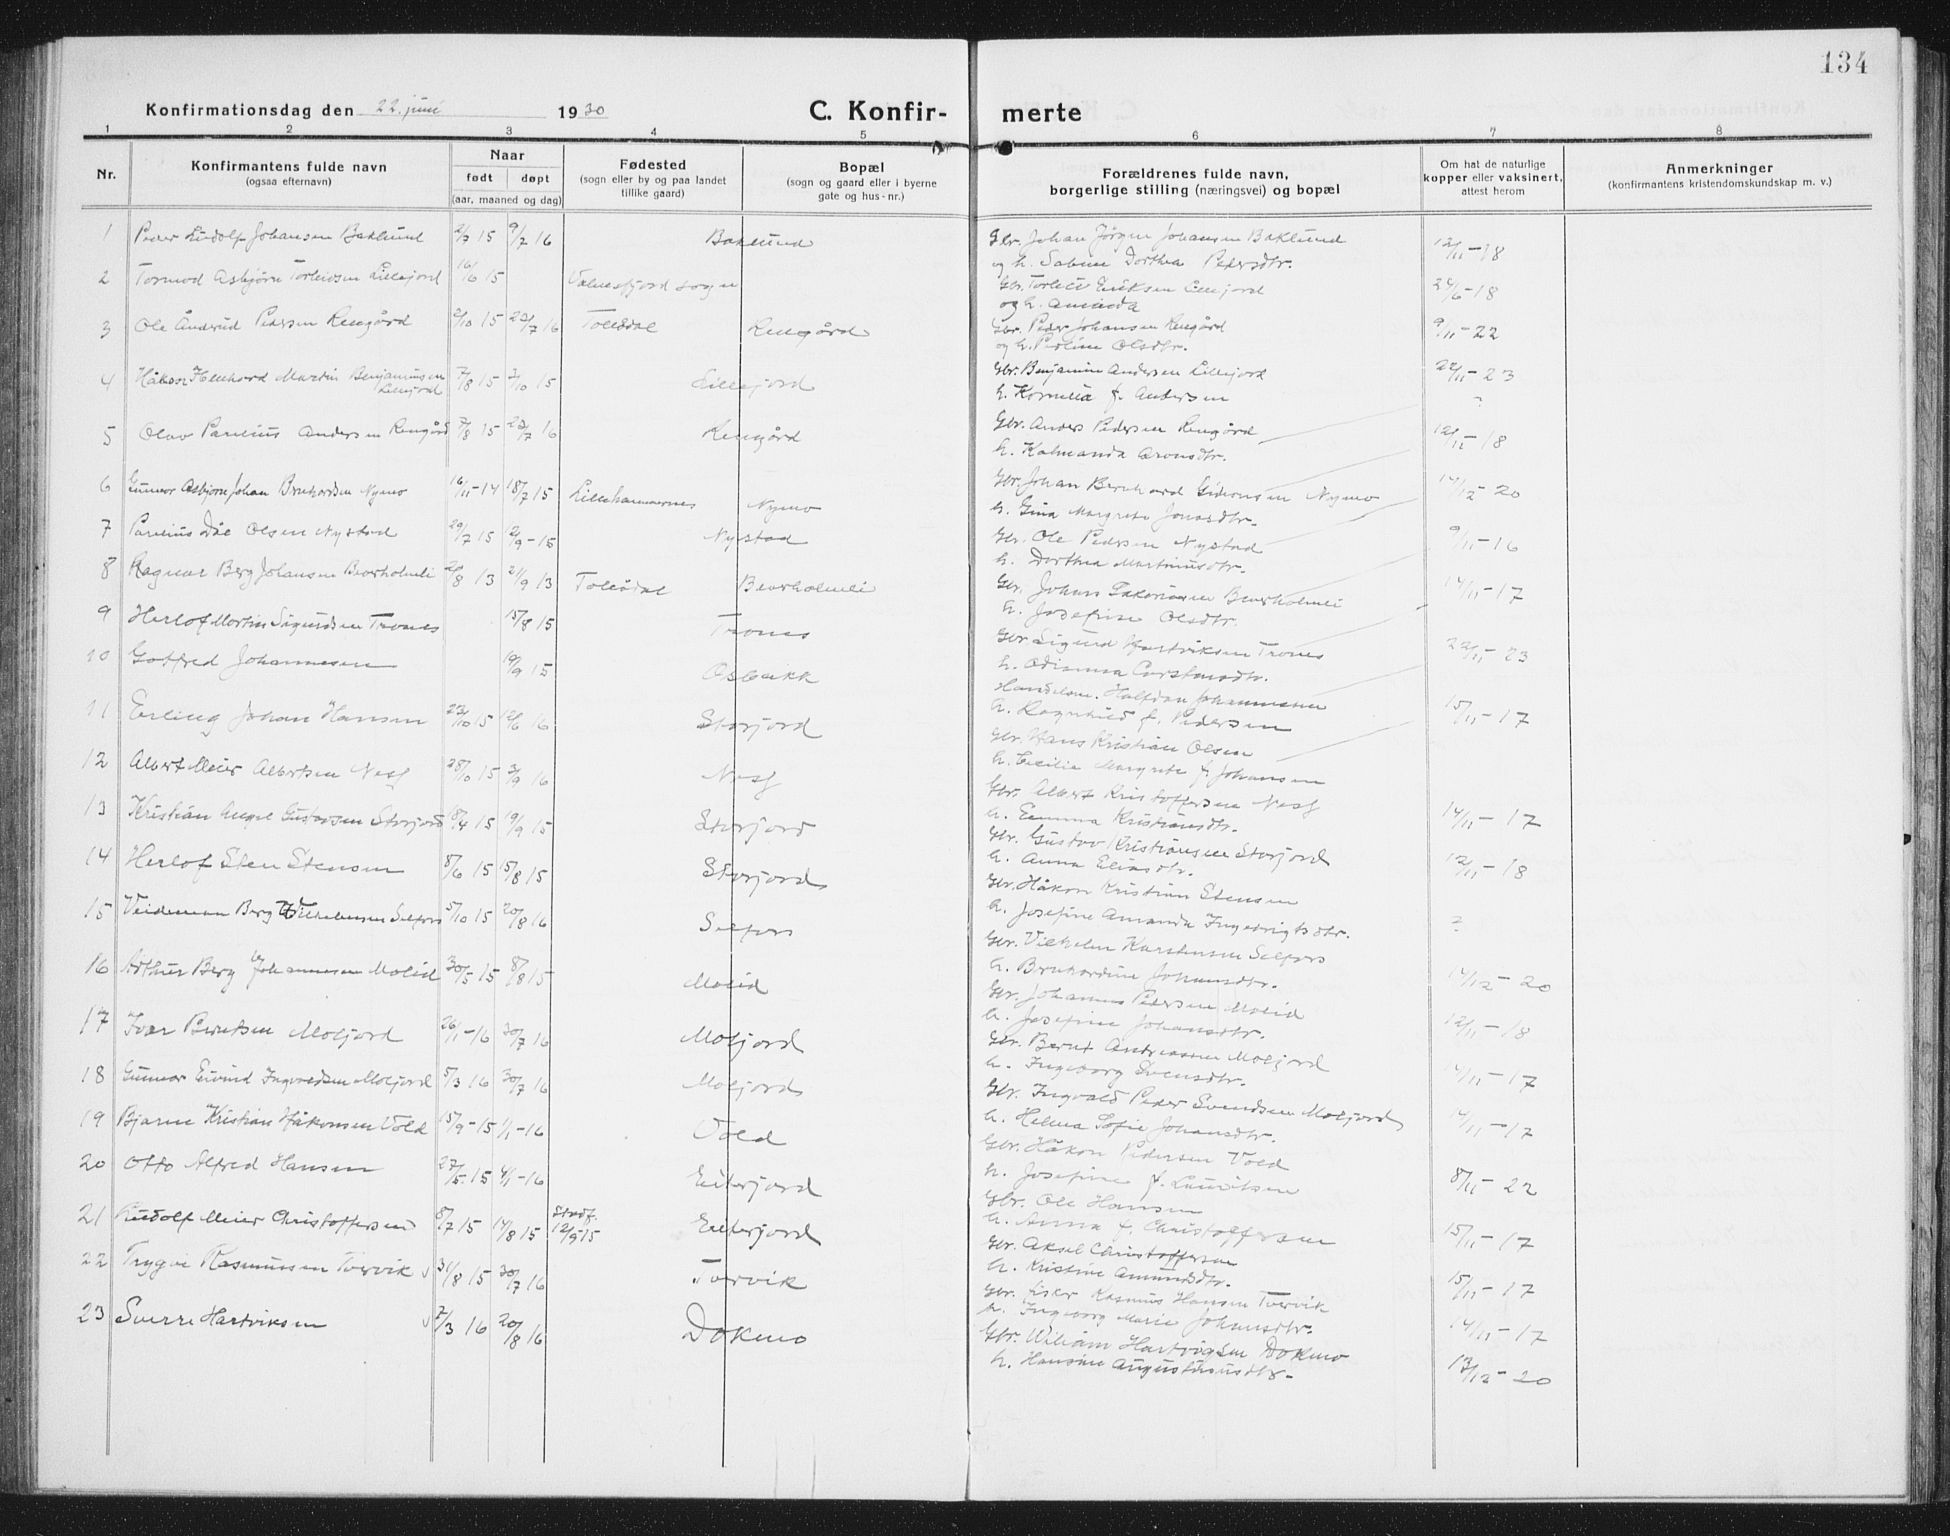 134
Konfirmationsdag den 22. juni 1930
C. Konfir- merte
1 2 3 4 5 6 7 8
Nr.
Konfirmantens fulde navn
(ogsaa efternavn)
Naar
født døpt
(aar, maaned og dag)
Fødested
(sogn eller by og paa landet
tillike gaard)
Bopæl
(sogn og gaard eller i byerne
gate og hus-nr.)
Forældrenes fulde navn,
borgerlige stilling (næringsvei) og bopæl
Om hat de naturlige
kopper eller vaksinert,
attest herom
Anmerkninger
(konfirmantens kristendomskundskap m. v.)
1 Peder Ludolf Johansen Baklund 2/7 15 9/7 16 Baklund Gbr. Johan Jörgen Johansen Baklund 12/11-18
og h. Sabine Dorthea Pedersdtr.
2 Tormod Asbjørn Torleivsen Lillejord 16/6 15 Valnesfjord sogn Gbr. Torleif Eriksen Lillejord 24/6-18
og h. Aminda
3 Ole Änderud Pedersen Rengård 2/10 15 23/7 16 Tollådal Rengård Gbr. Peder Johansen Rengård 9/11-22
og h. Pauline Olsdtr.
4 Håkon Henhard Martin Benjaminsen 7/8 15 3/10 15 Lillejord Gbr. Benjamin Andersen Lillejord 22/11-23
Lillejord h. Kornelia f. Andersen ?
5 Olav Paulius Andersen Rengård 7/8 15 23/7 16 Rengård Gbr. Anders Pedersen Rengård 12/11-18
h. Kalmanda Aronsdtr.
6 Gunnar Asbjørn Johan Bernhardsen Nymo 16/11-14 18/7 15 Lillehammernes Nymo Gbr. Johan Bernhard Gideonsen Nymo 14/12-20
h. Gina Margrete Jonasdtr.
7 Paulius Dåe Olsen Nystad 29/7 15 12/9-15 Nystad Gbr. Ole Pedersen Nystad 9/11-16
h. Dorthea Martinusdtr.
8 Ragnar Berg Johansen Beverholmli 26/8 13 21/9 13 Tollådal Beverholmli Gbr. Johan Zakariasen Beverholmli 14/11-17
h. Josefine Olsdtr.
9 Herlof Martin Sigurdsen Trones 15/8 15 Trones Gbr. Sigurd Hartviksen Trones 22/11-23
h. Odianna Carstensdtr.
10 Gotfred Johannesen 19/9 15 Osbakk Handelsm. Halfdan Johannesen 15/11-17
h. Ragnhild f. Pedersen
11 Erling Johan Hansen 23/10 15 12/6 16 Storjord Gbr. Hans Kristian Olsen
h. Cecilie Margrete f. Johansen
12 Albert Meier Albertsen Næss 28/10 15 3/9 16 Næss Gbr. Albert Kristoffersen Næss 14/11-17
h. Emma Kristiansdtr.
13 Kristian Angel Gustavsen Storjord 18/4 15 19/9 15 Storjord Gbr. Gustav Kristiansen Storjord 12/11-18
h. Anna Eliasdtr.
14 Herlof Sten Stensen 8/6 15 15/8 15 Storjord Gbr. Håkon Kristian Stensen
h. Josefine Amanda Ingebrigtsdtr. ?
15 Veideman Berg Vilhelmsen Selfors 5/10 15 20/8 16 Selfors Gbr. Vilhelm Karstensen Selfors
h. Bernhardine Johansdtr. 14/12-20
16 Arthur Berg Johannesen Molid 30/5 15 8/8 15 Molid Gbr. Johannes Pedersen Molid
h. Josefine Johansdtr. 12/11-18
17 Ivar Berntsen Moljord 26/1-16 30/7 16 Moljord Gbr. Bernt Andreassen Moljord
h. Ingeborg Svensdtr. 14/11-17
18 Gunnar Eivind Ingvaldsen Moljord 5/3 16 30/7 16 Moljord Gbr. Ingvald Peder Svendsen Moljord
h. Helma Sofie Johansdtr. 14/11-17
19 Bjarne Kristian Håkonsen Vold 15/9-15 1/1-16 Vold Gbr. Håkon Pedersen Vold
h. Josefine f. Lauritsen 8/11-22
20 Otto Alfred Hansen 27/5-15 4/1-16 Eiterjord Gbr. Ole Hansen
h. Anna f. Christoffersen 15/11-17
21 Rudolf Meier Christoffersen 8/7 15 14/8 15 Stadf. 12/9 15 Eiterjord Gbr. Aksel Christoffersen
h. Kristine Amundsdtr. 15/11-17
22 Trygve Rasmussen Tverrvik v 31/8 15 30/7 16 Tverrvik Gbr. fisker Rasmus Hansen Tverrvik
h. Ingeborg Marie Johansdtr. 14/11-17
23 Sverre Hartviksen v 7/3 16 20/8 16 Dokmo Gbr. William Hartvigsen Dokmo
h. Hansine Augustinusdtr. 13/12-20